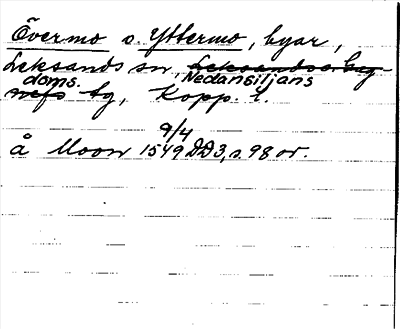 Övermo o. Yttermo, byar,
Leksands sn, Leksands o. Gag-
Nedansiljans
doms.
nefs tg, Kopp. l.
9/4
å Moon 1549 DD3, s. 98 or.